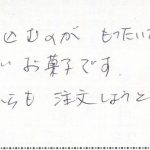 込むのが もったい
いお菓子です.
らも 注文しようと